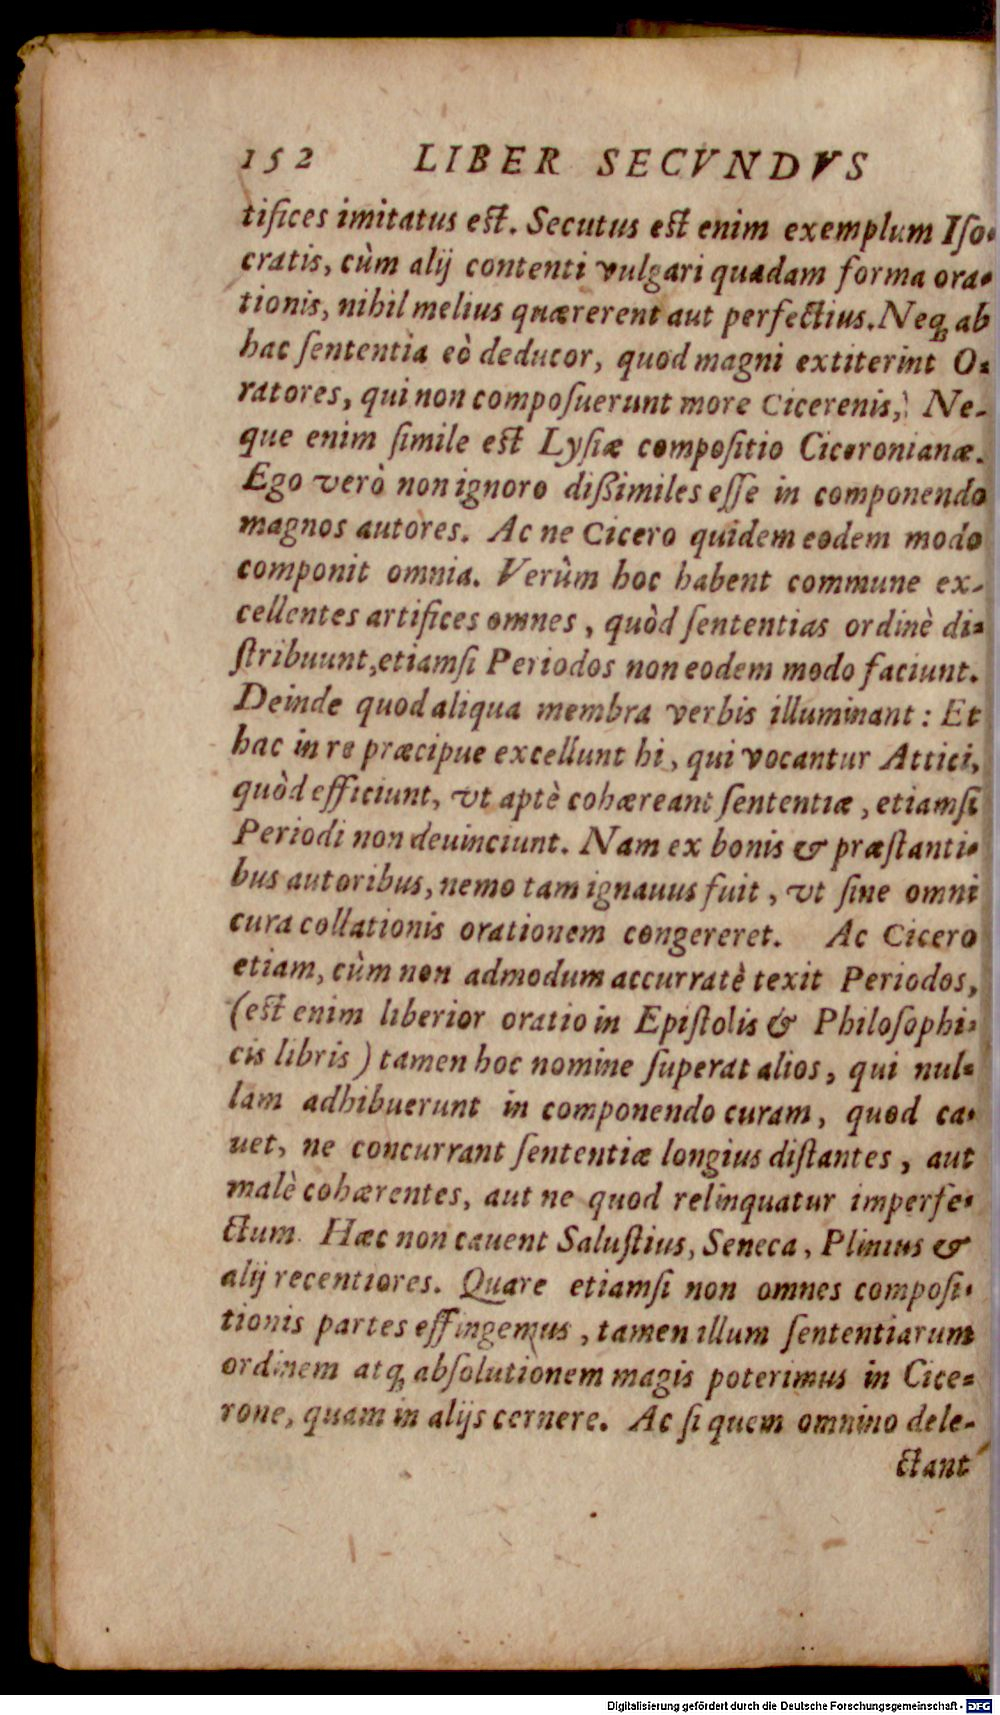 152 LIBER SECVNDVS
tifices imitatus est. Secutus est enim exemplum Iſo-
cratis, cùm alij contenti vulgari quadam forma ora-
tionis, nihil melius quærerent aut perfectius. Neqꝫ ab
hac ſententia eò deducor, quod magni extiterint O-
ratores, qui non compoſuerunt more Cicerenis, Ne-
que enim ſimile est Lyſiæ compoſitio Ciceronianæ.
Ego verò non ignoro dißimiles eſſe in componendo
magnos autores. Ac ne Cicero quidem eodem modo
componit omnia. Verùm hoc habent commune ex-
cellentes artifices omnes, quòd ſententias ordinè di-
ſtribuunt, etiamſi Periodos non eodem modo faciunt.
Deinde quod aliqua membra verbis illuminant: Et
hac in re præcipue excellunt hi, qui vocantur Attici,
quòd efficiunt, vt aptè cohæreant ſententiæ, etiamſi
Periodi non deuinciunt. Nam ex bonis & præſtanti-
bus autoribus, nemo tam ignauus fuit, vt ſine omni
cura collationis orationem congereret. Ac Cicero
etiam, cùm non admodum accurratè texit Periodos,
(est enim liberior oratio in Epiſtolis & Philoſophi-
cis libris) tamen hoc nomine ſuperat alios, qui nul-
lam adhibuerunt in componendo curam, quod ca-
uet, ne concurrant ſententiæ longius diſtantes, aut
malè cohærentes, aut ne quod relinquatur imperfe-
ctum. Hæc non cauent Saluſtius, Seneca, Plinius &
alij recentiores. Quare etiamſi non omnes compoſi-
tionis partes effingemus, tamen illum ſententiarum
ordinem atqꝫ abſolutionem magis poterimus in Cice-
rone, quam in alijs cernere. Ac ſi quem omnino dele-
ctant
Digitalisierung gefördert durch die Deutsche Forschungsgemeinschaft - DFG